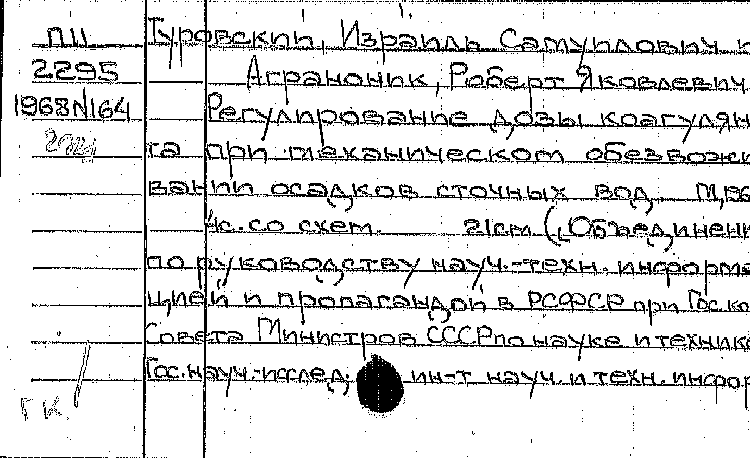 П11
2295
1968N164
Туровский, Израиль Самуилович и
Аграноник, Роберт Яковлевич
Регулирование дозы коагулян
та при механическом обезвожи
вании осадков сточных вод. М,196
4с. со схем. 21см (Объединен
по руководству науч.-техн. информа
цией и пропагандой в РСФСР при Гос.ко
Совета Министров СССР по науке и технике
Гос.науч.-исслед. ин-т науч. и техн. инфор
Г К.